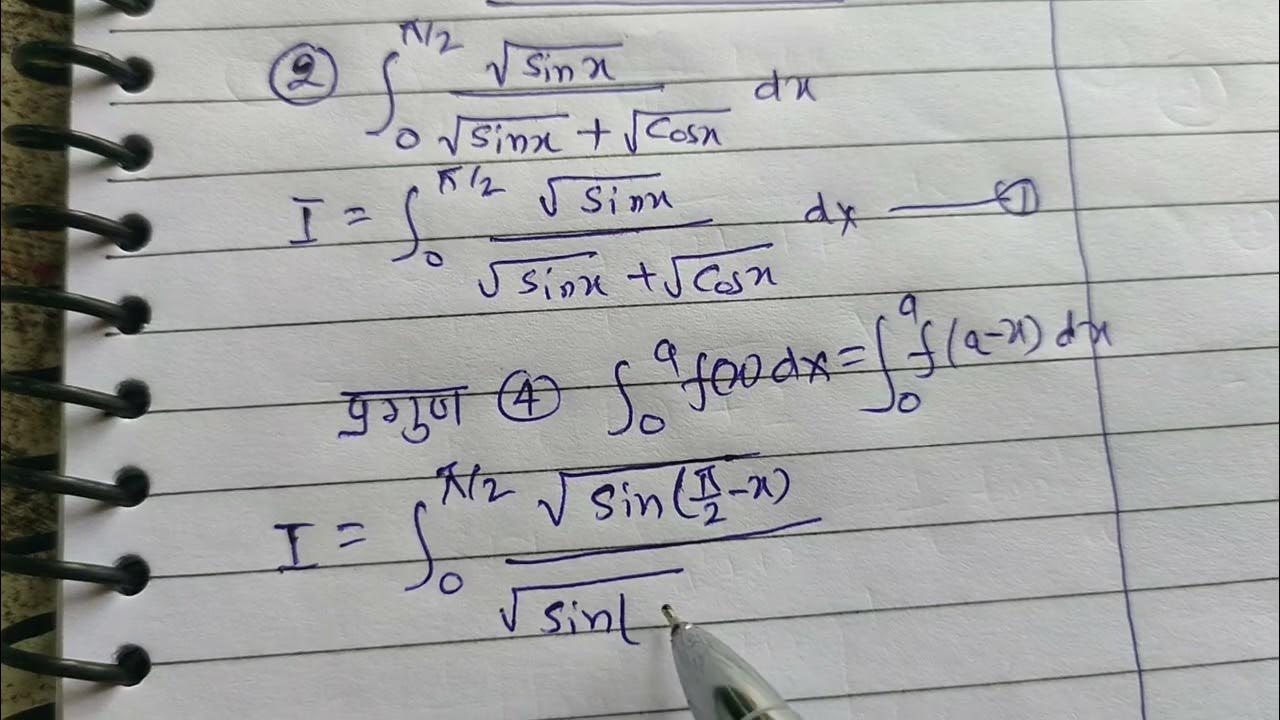 ② ∫₀^(π/2) √(sinx) / (√(sinx) + √(cosx)) dx
I = ∫₀^(π/2) √(sinx) / (√(sinx) + √(cosx)) dx —— ①
प्रगुण ④ ∫₀^a f(x) dx = ∫₀^a f(a-x) dx
I = ∫₀^(π/2) √(sin(π/2 - x)) / √(sin(